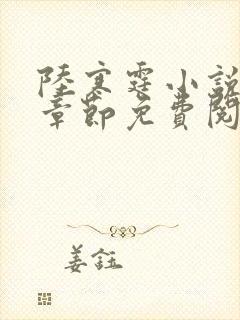 陸寒霆小說
章節免費閱
姜鈺